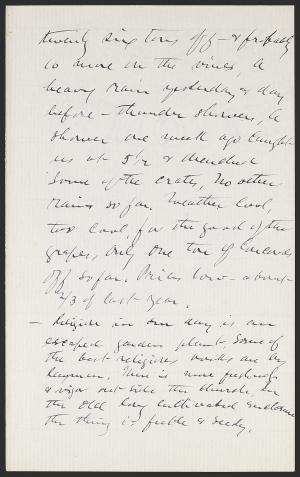 twenty six tons off - & probably
10 more on the vines, A
heavy rain yesterday & day
before - thunder showers, A
shower one week ago caught
us at 5½ & drenched
some of the crates, No other
rains so far. Weather cool,
too cool for the good of the
grapes, only one ton of
off so far. Prices low - about
2/3 of last year.
- Religion in our day is an
escaped garden plant, Some of
the best religious works are by
laymen. There is more freshness
& vigor out side the church, In
the old long cultivated enclosure
the thing is feeble & seedy.